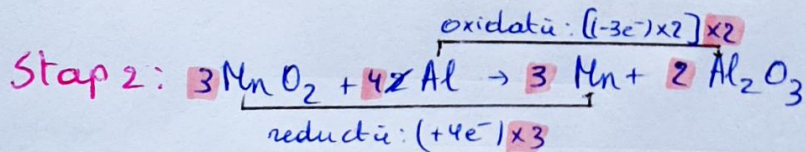 oxidatie: [(-3e⁻)×2]×2
Stap 2: 3 MnO₂ + 4 Al → 3 Mn + 2 Al₂O₃
reductie: (+4e⁻)×3